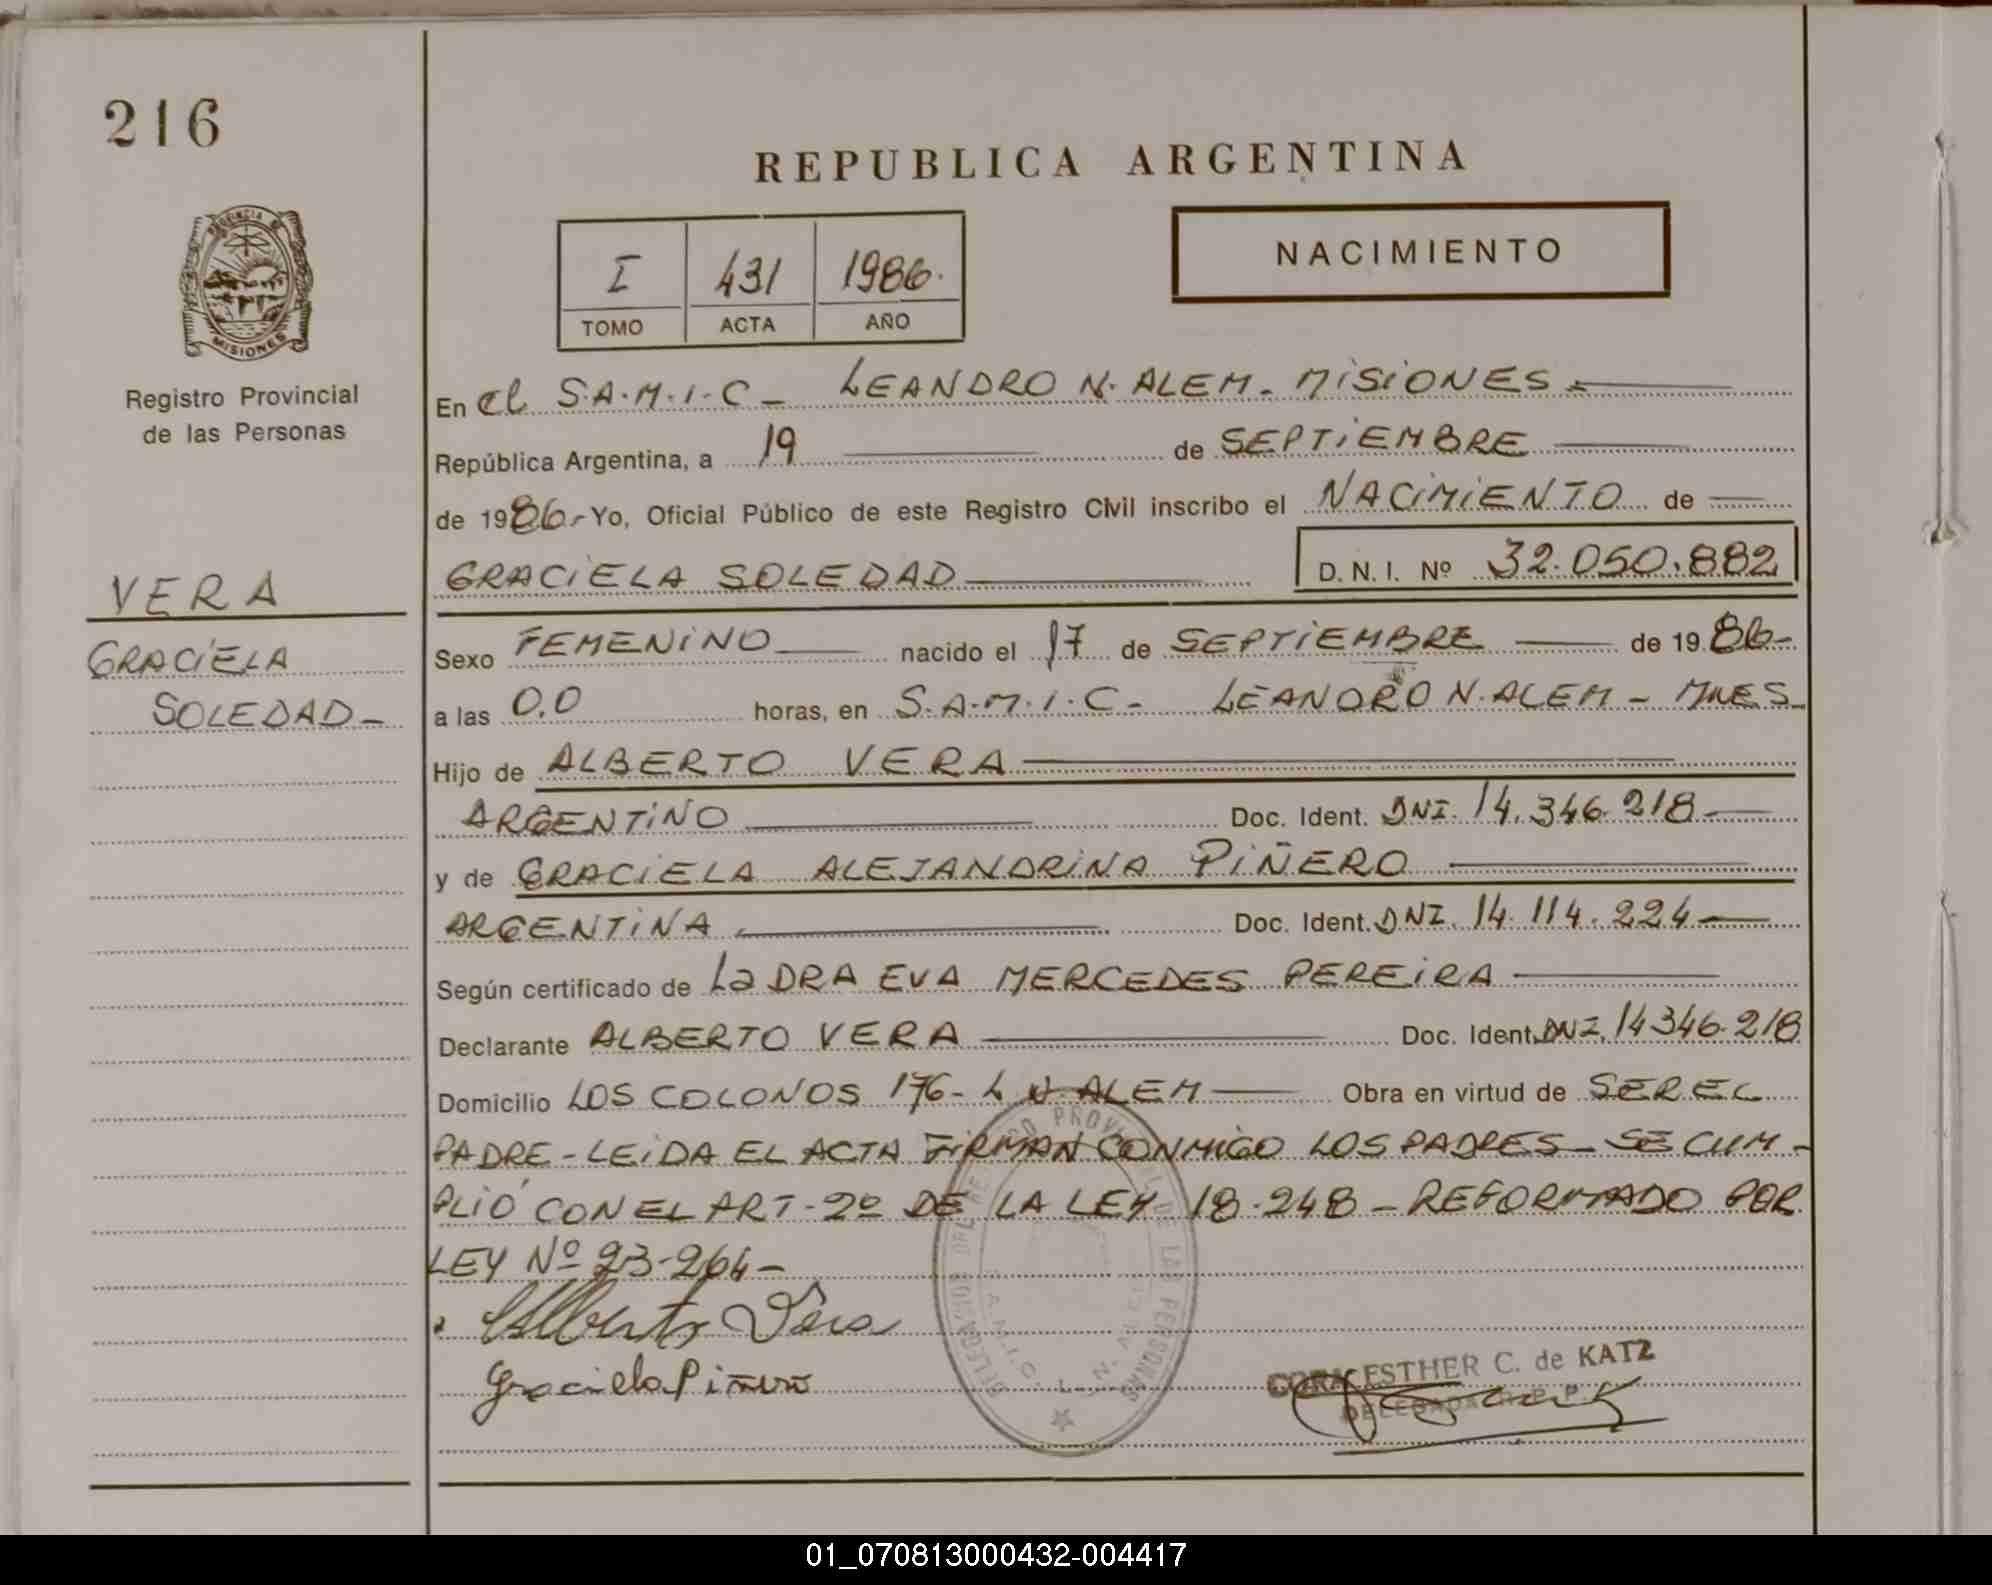 216
REPUBLICA ARGENTINA
PROVINCIA DE
MISIONES
Registro Provincial
de las Personas
I 431 1986.
TOMO ACTA AÑO
NACIMIENTO
VERA
GRACIELA
SOLEDAD-
En el S.A.M.I.C- LEANDRO N. ALEM- MISIONES-
República Argentina, a 19 de SEPTIEMBRE
de 1986.- Yo, Oficial Público de este Registro Civil inscribo el NACIMIENTO de
GRACIELA SOLEDAD D.N.I. Nº 32.050.882
Sexo FEMENINO nacido el 17 de SEPTIEMBRE de 1986-
a las 0,0 horas, en S.A.M.I.C- LEANDRO N. ALEM- MNES-
Hijo de ALBERTO VERA
ARGENTINO Doc. Ident. DNI. 14.346.218
y de GRACIELA ALEJANDRINA PIÑERO
ARGENTINA Doc. Ident. DNI. 14.114.224
Según certificado de La DRA EVA MERCEDES PEREIRA
Declarante ALBERTO VERA Doc. Ident. DNI. 14346.218
Domicilio LOS COLONOS 176- L N ALEM Obra en virtud de SER EL
PADRE-LEIDA EL ACTA FIRMAN CONMIGO LOS PADRES- SE CUM-
PLIÓ CON EL ART-2º DE LA LEY 18.248-REFORMADO POR
LEY Nº 23-264-
Alberto Vera
Graciela Piñero
DELEGACION DEL REGISTRO PROVINCIAL DE LAS PERSONAS
S.A.M.I.C. L. N. ALEM
CORA ESTHER C. de KATZ
DELEGADA R. P. P.
01_070813000432-004417